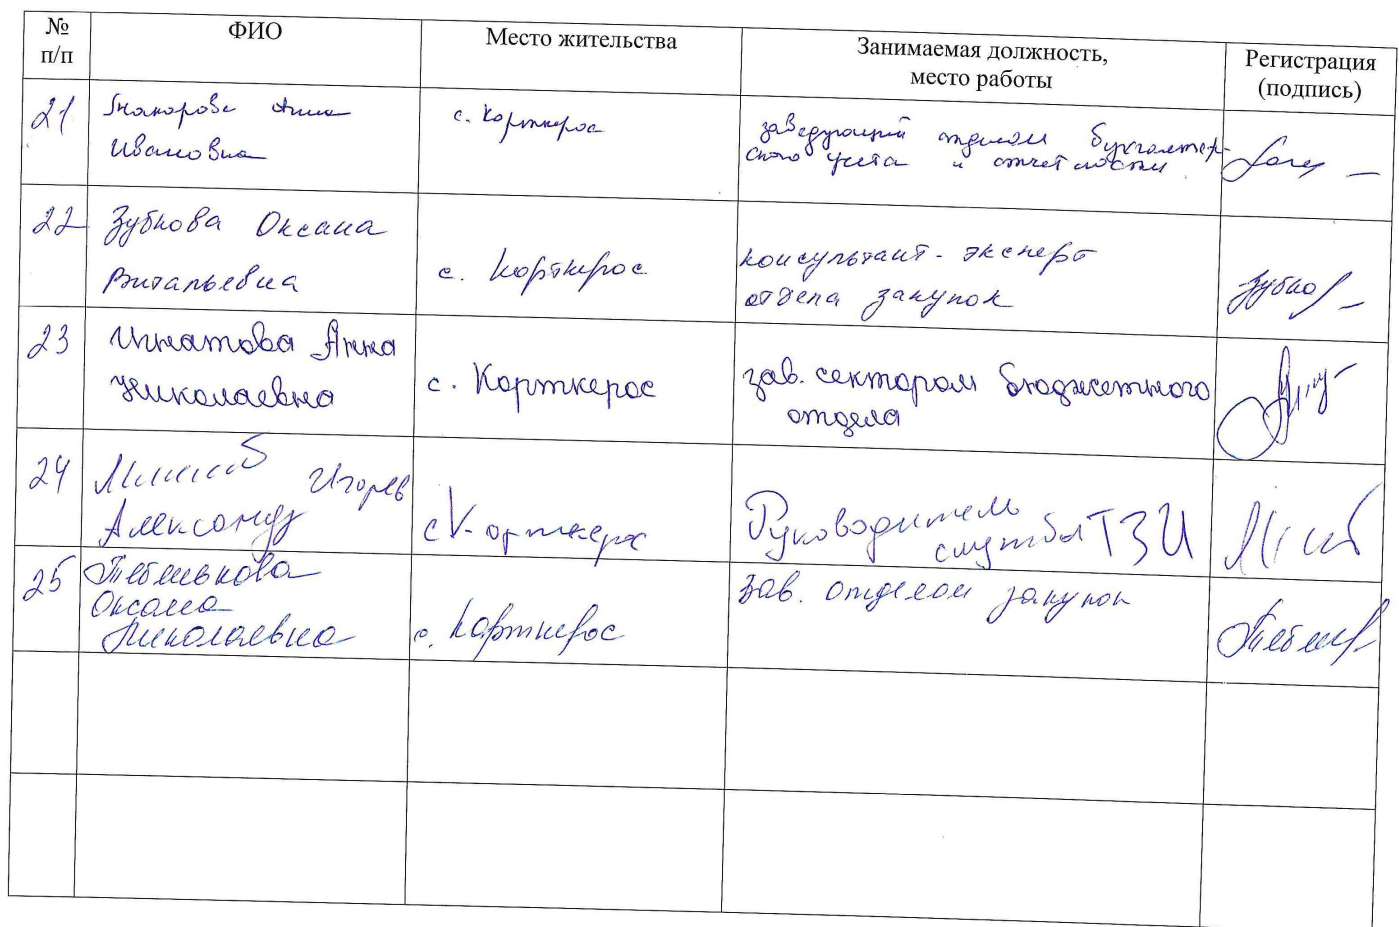 № п/п
ФИО
Место жительства
Занимаемая должность,
место работы
Регистрация
(подпись)
21
Анна
Ивановна
с. Корткерос
заведующий отделом бухгалтер-
ского учета и отчетности
22
Зубкова Оксана
Витальевна
с. Корткерос
консультант-эксперт
отдела закупок
Зубко
23
Игнатова Анна
Николаевна
с. Корткерос
зав. сектором бюджетного
отдела
24
Игорев
Александр
с Корткерос
Руководитель
службы ТЗИ
25
Тебенькова
Оксана
Николаевна
с. Корткерос
зав. отделом закупок